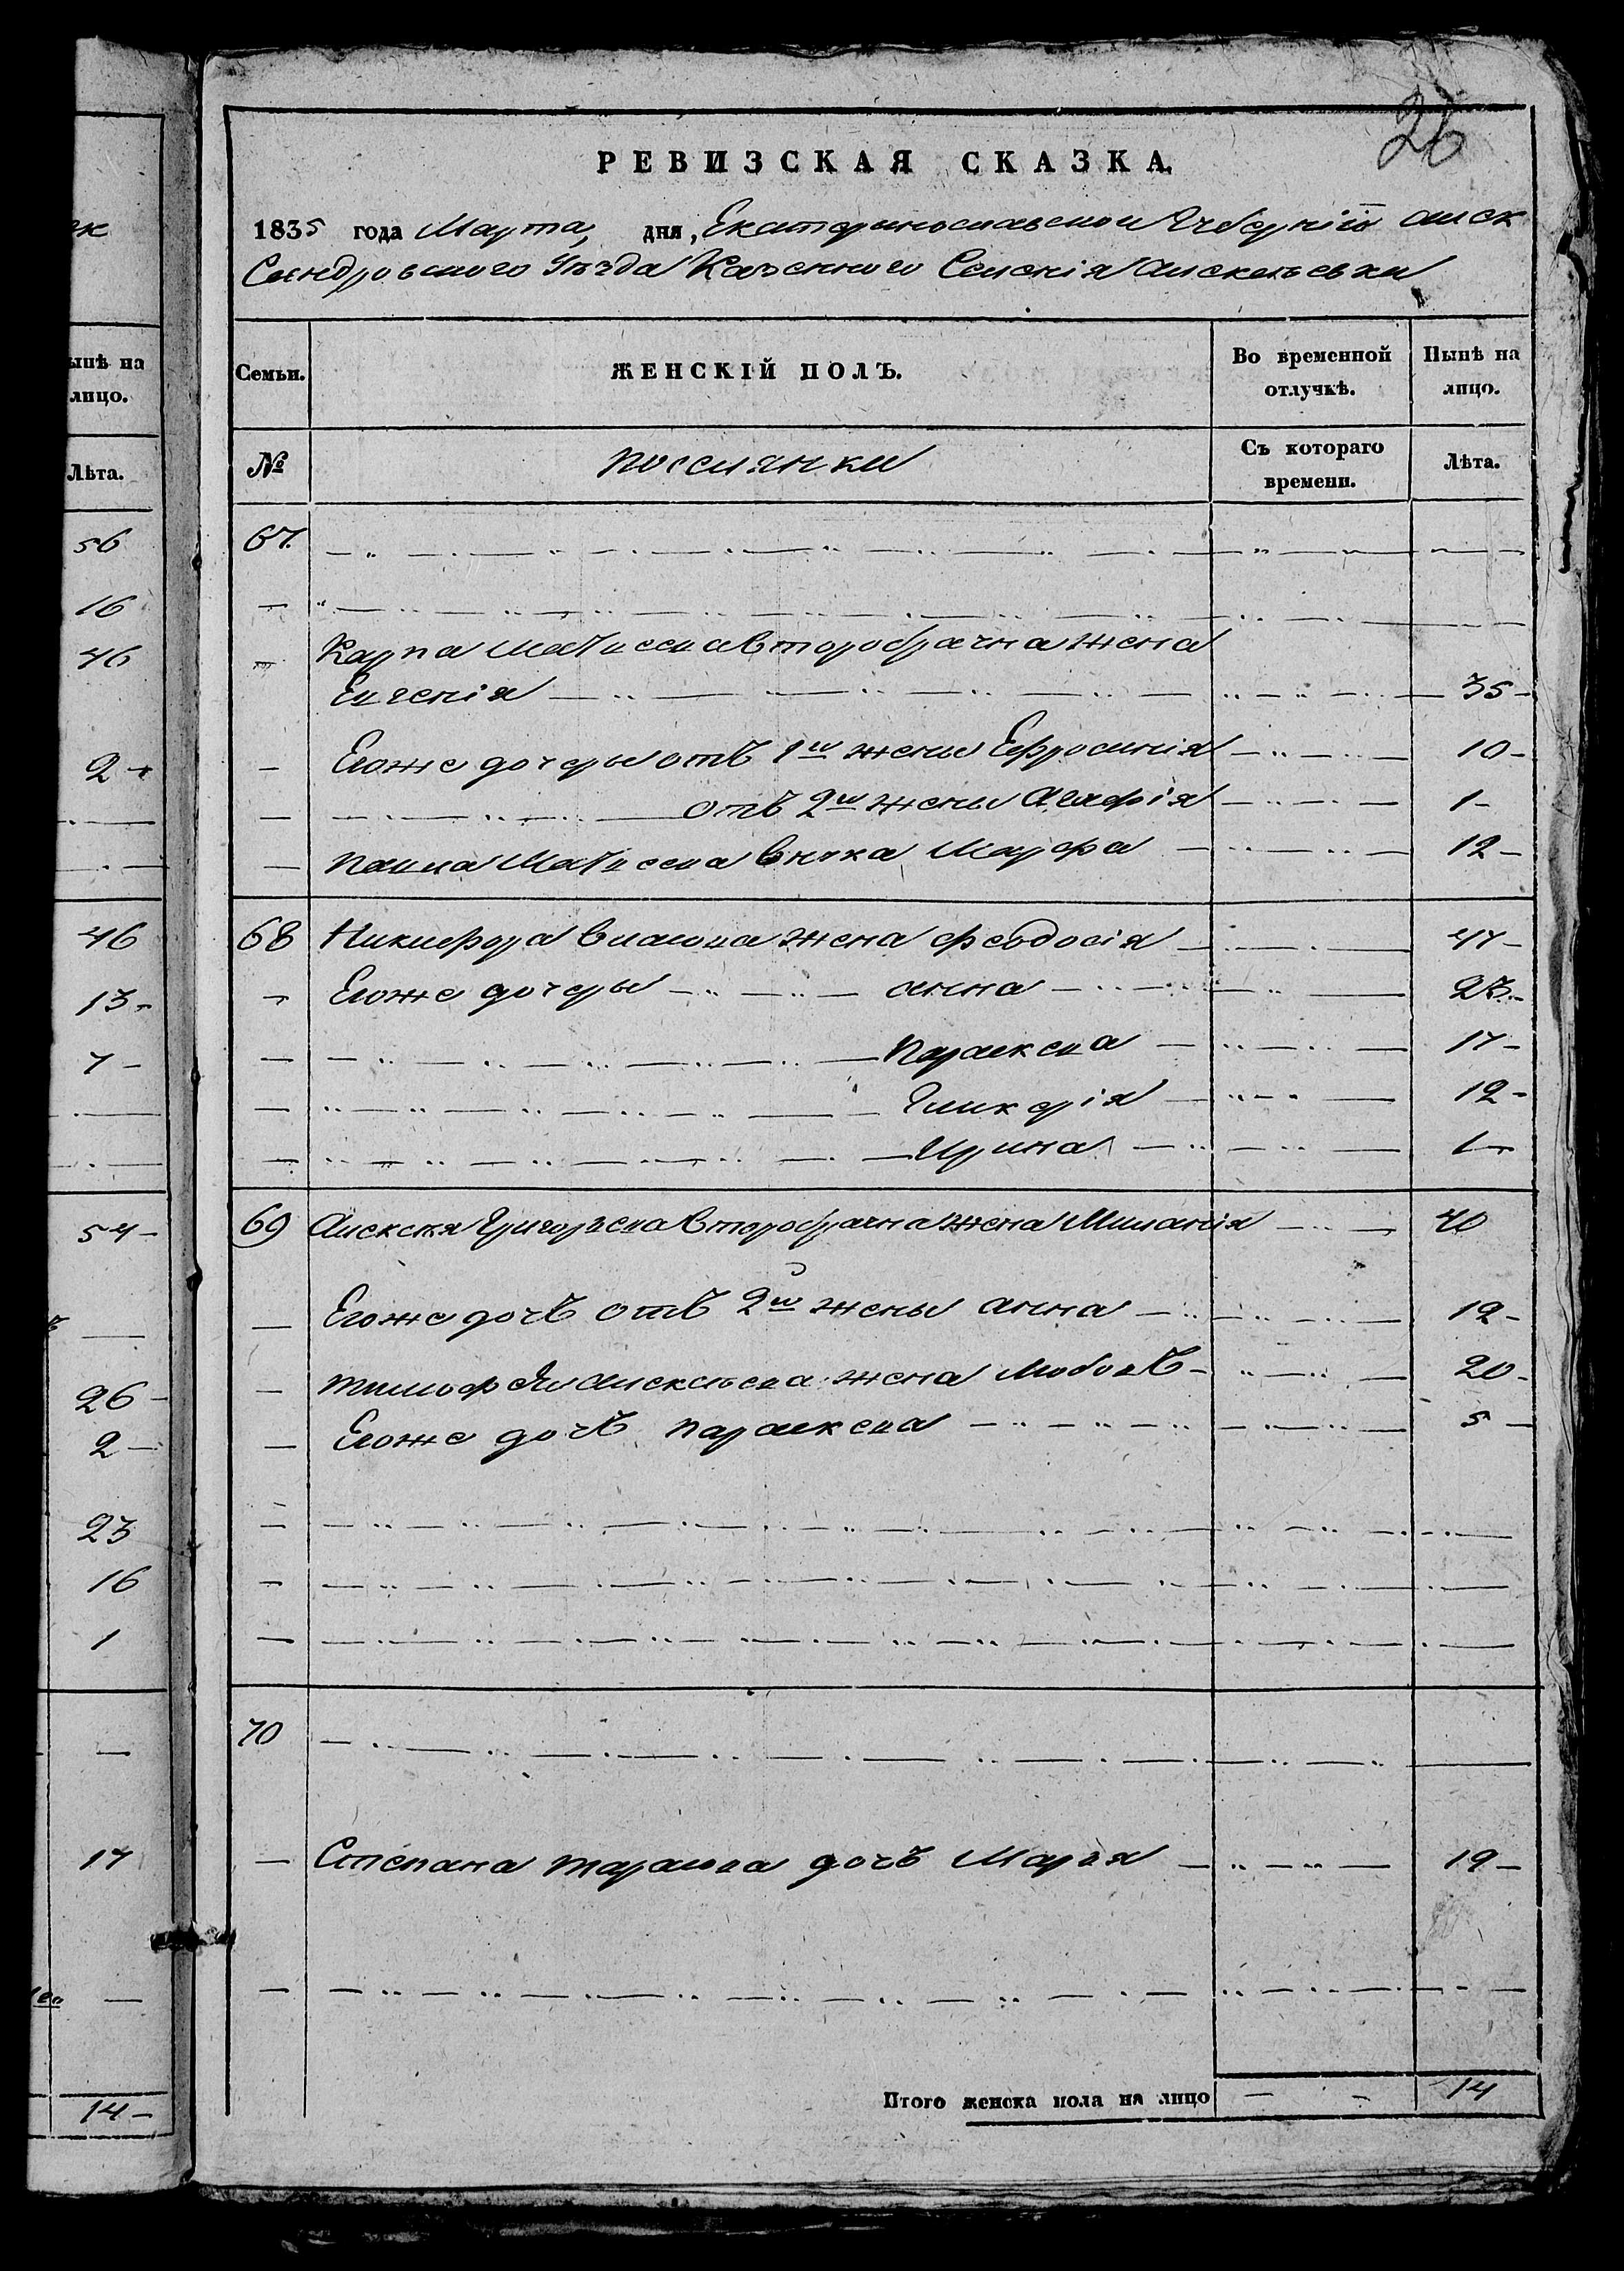 26
РЕВИЗСКАЯ СКАЗКА.
1835 года Марта, дня, Екатеринославской Губерніи Алек
сендровского Уезда Казенного Селенія Алексеевки
Семьи.
ЖЕНСКІЙ ПОЛЪ.
Во временной отлучкѣ.
Нынѣ на лицо.
№
поселянки
Съ котораго времени.
Лѣта.
67.
Карпа второбрачна жена
Евгенія 35
Егоже дочеры отъ 1й жены Ефросинія 10
отъ 2й жены Агафія 1
внука Марфа 12
68 Никифора Власова жена Феодосія 47
Егоже дочеры Анна 23
Параскева 17
Гликерія 12
Ирина 1
69 Алексея Григорьева второбрачна жена Миланія 40
Егоже дочь отъ 2й жены Анна 12
Тимофея Алексеева жена Любовь 20
Егоже дочь Параскева 5
70
Степана Тарасова дочь Марья 19
Итого женска пола на лицо 14
ынѣ на
лицо.
Лѣта.
56
16
46
2
46
13
7
54
26
2
23
16
1
17
14